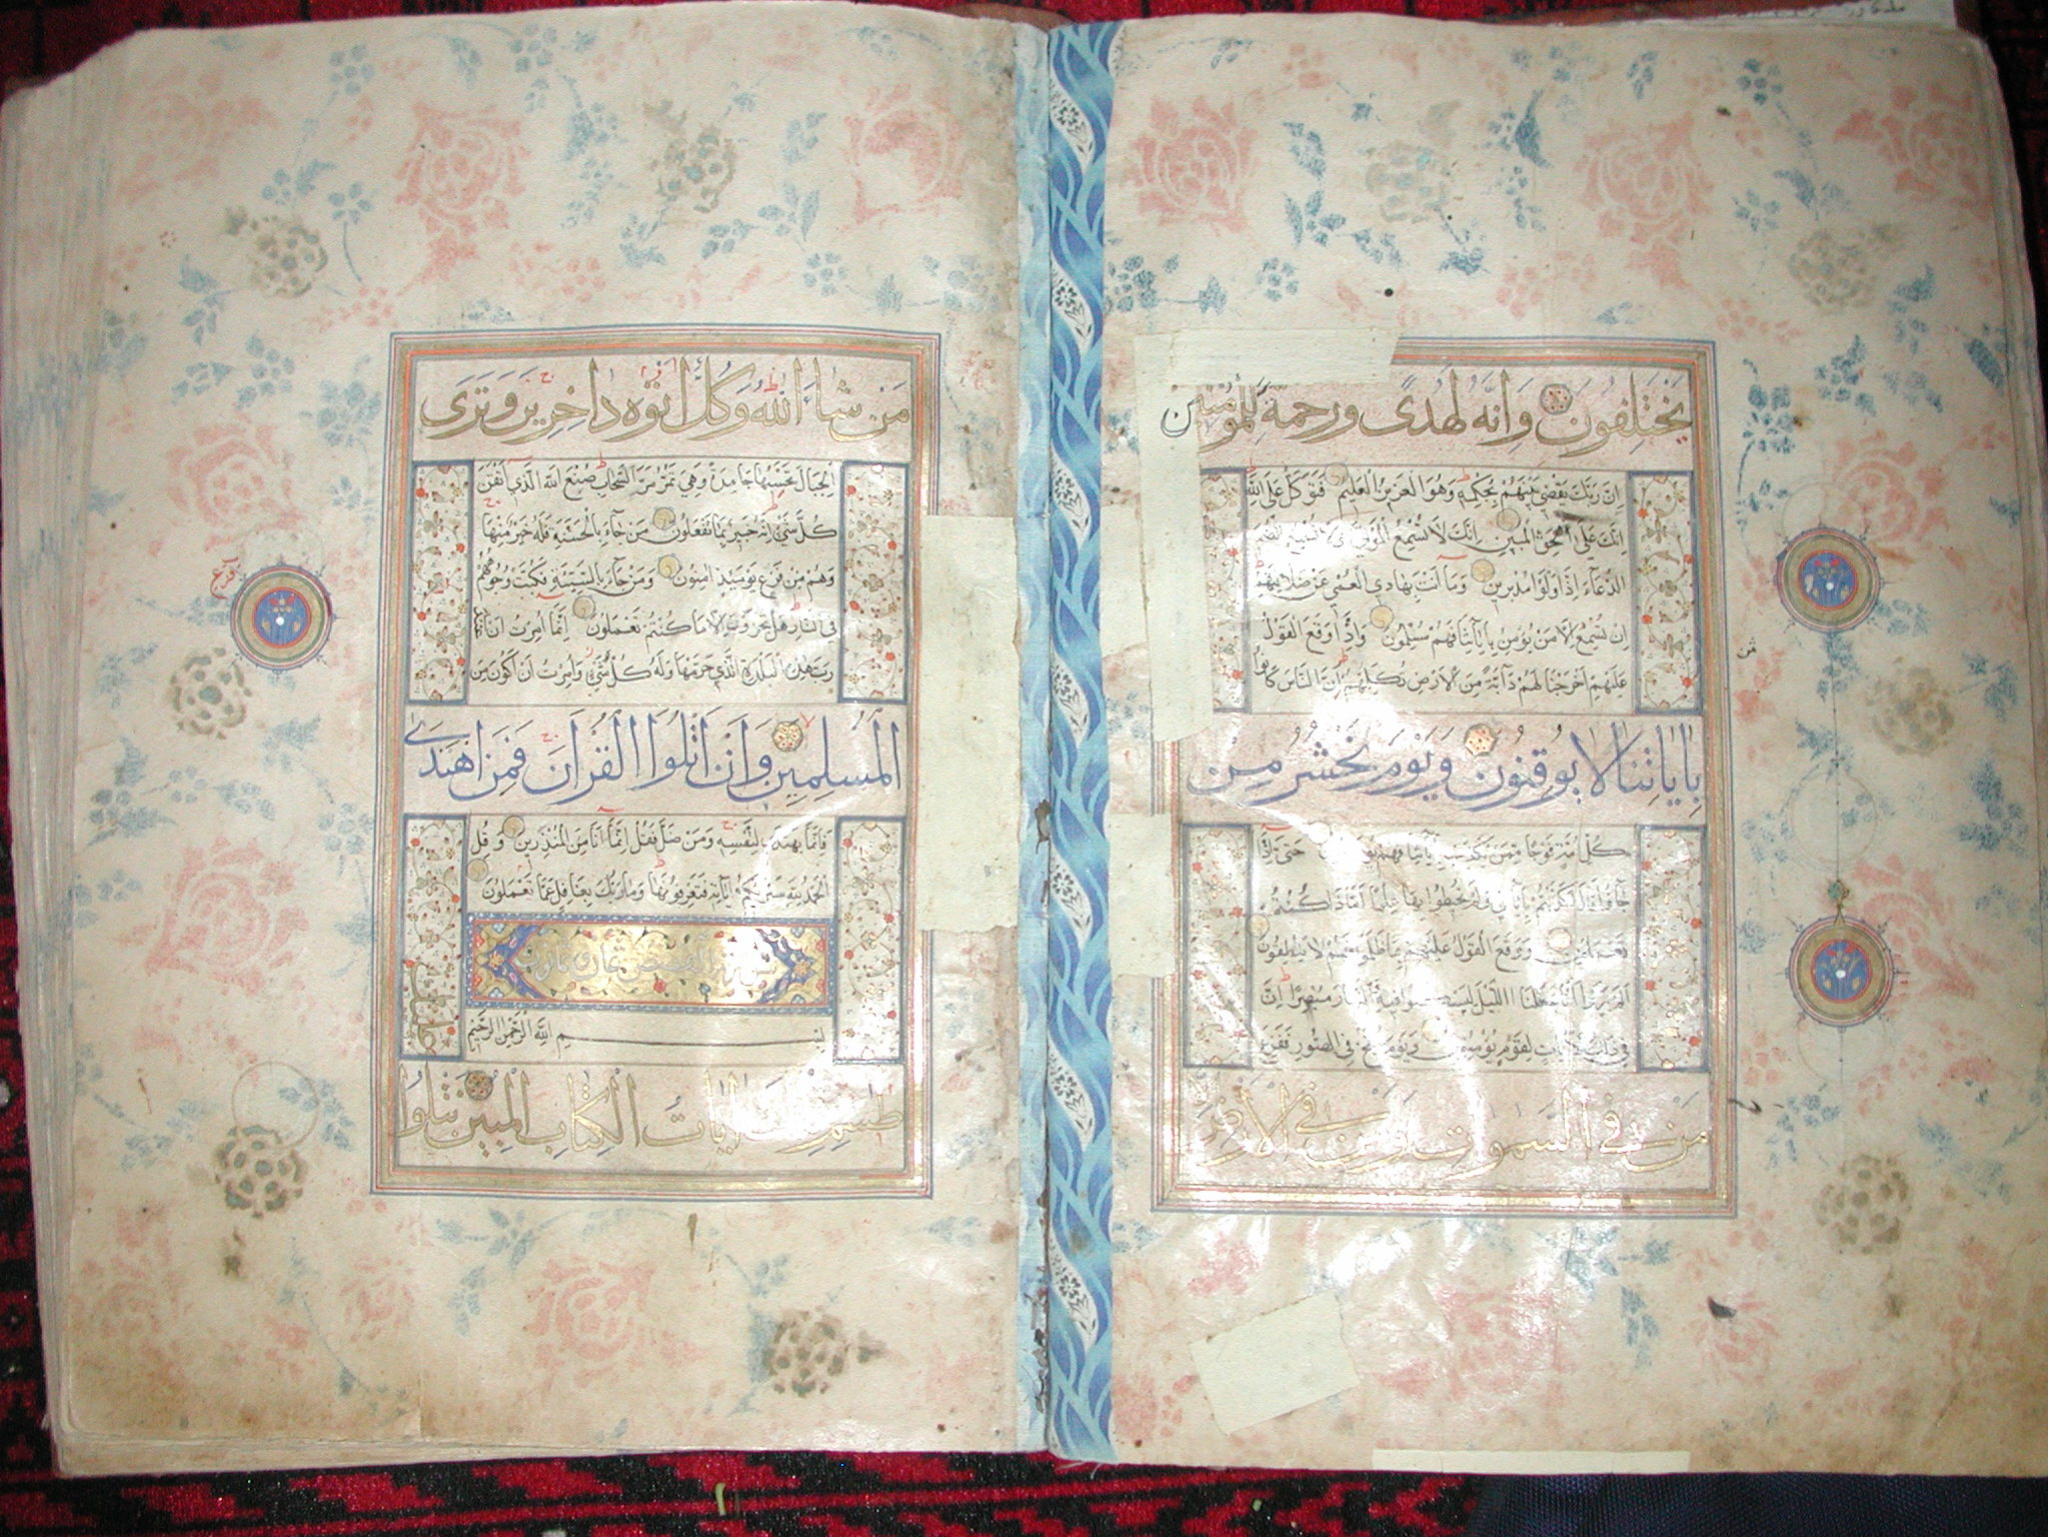 يختلفون وانه لهدى ورحمة للمؤمنين
ان ربك يقضي بينهم بحكمه وهو العزيز العليم فتوكل على الله
انك على الحق المبين انك لا تسمع الموتى ولا تسمع الصم
الدعاء اذا ولوا مدبرين وما انت بهادي العمي عن ضلالتهم
ان تسمع الا من يؤمن باياتنا فهم مسلمون واذا وقع القول
عليهم اخرجنا لهم دابة من الارض تكلمهم ان الناس كانوا
باياتنا لا يوقنون ويوم نحشر من
كل امة فوجا ممن يكذب باياتنا فهم حتى اذا
قال اكذبتم باياتي ولم تحيطوا بها علما اماذا كنتم
تعملون ووقع القول عليهم بما ظلموا فهم لا ينطقون
الم يروا انا جعلنا الليل ليسكنوا فيه والنهار مبصرا ان
في ذلك لايات لقوم يؤمنون ويوم ينفخ في الصور ففزع
من في السموات ومن في الارض
من شاء الله وكل اتوه داخرين وترى
الجبال تحسبها جامدة وهي تمر مر السحاب صنع الله الذي اتقن
كل شيء انه خبير بما تفعلون من جاء بالحسنة فله خير منها
وهم من فزع يومئذ امنون ومن جاء بالسيئة فكبت وجوههم
في النار هل تجزون الا ما كنتم تعملون انما امرت ان اعبد
رب هذه البلدة الذي حرمها وله كل شيء وامرت ان اكون من
المسلمين وان اتلوا القران فمن اهتدى
فانما يهتدي لنفسه ومن ضل فقل انما انا من المنذرين وقل
الحمد لله سيريكم اياته فتعرفونها وما ربك بغافل عما تعملون
سورة القصص ثمان وثمانون
بسم الله الرحمن الرحيم
طسم تلك ايات الكتاب المبين نتلوا